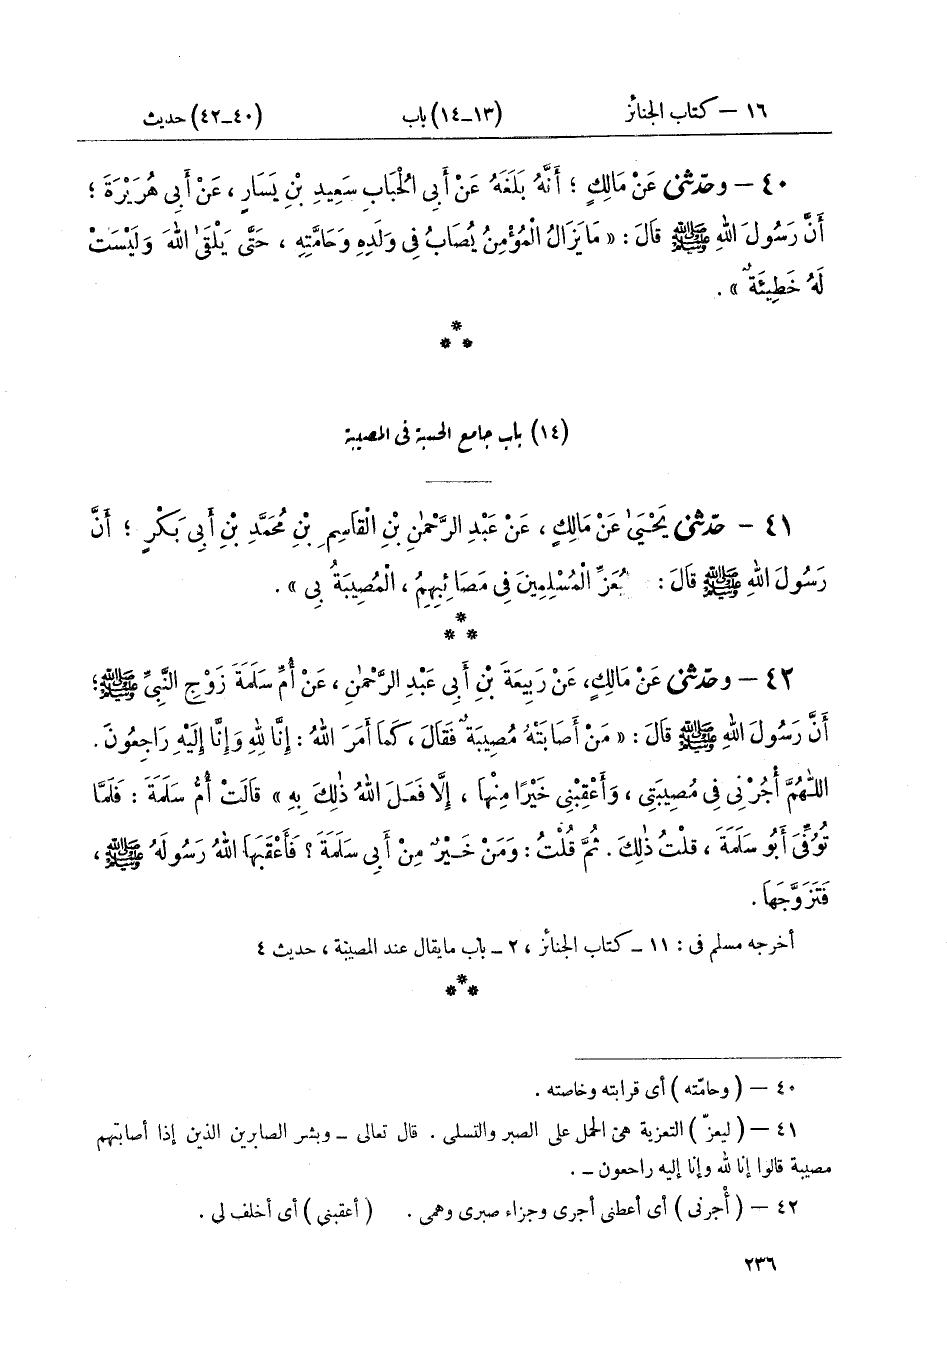 ١٦ – كتاب الجنائز (١٣–١٤) باب (٤٠–٤٢) حديث
٤٠ – وحدّثنى عَنْ مَالِكٍ ؛ أَنَّهُ بَلَغَهُ عَنْ أَبِى الْحُبَابِ سَعِيدِ بْنِ يَسَارٍ ، عَنْ أَبِى هُرَيْرَةَ ؛
أَنَّ رَسُولَ اللهِ ﷺ قَالَ : « مَا يَزَالُ الْمُؤْمِنُ يُصَابُ فِى وَلَدِهِ وَحَامَّتِهِ ، حَتَّى يَلْقَى اللهَ وَلَيْسَتْ
لَهُ خَطِيئَةٌ » .
(١٤) باب جامع الحسبة فى المصيبة
٤١ – حدّثنى يَحْيَى عَنْ مَالِكٍ ، عَنْ عَبْدِ الرَّحْمٰنِ بْنِ الْقَاسِمِ بْنِ مُحَمَّدِ بْنِ أَبِى بَكْرٍ ؛ أَنَّ
رَسُولَ اللهِ ﷺ قَالَ : الْمُسْلِمِينَ فِى مَصَائِبِهِمُ ، الْمُصِيبَةُ بِى » .
٤٢ – وحدّثنى عَنْ مَالِكٍ، عَنْ رَبِيعَةَ بْنِ أَبِى عَبْدِ الرَّحْمٰنِ ، عَنْ أُمِّ سَلَمَةَ زَوْجِ النَّبِيِّ ﷺ؛
أَنَّ رَسُولَ اللهِ ﷺ قَالَ : « مَنْ أَصَابَتْهُ مُصِيبَةٌ فَقَالَ ، كَمَا أَمَرَ اللهُ : إِنَّا لِلهِ وَإِنَّا إِلَيْهِ رَاجِعُونَ .
اللّٰهُمَّ أْجُرْنِى فِى مُصِيبَتِى ، وَأَعْقِبْنِى خَيْرًا مِنْهَا ، إِلَّا فَعَلَ اللهُ ذٰلِكَ بِهِ » قَالَتْ أُمُّ سَلَمَةَ : فَلَمَّا
تُوُفِّىَ أَبُو سَلَمَةَ ، قلْتُ ذٰلِكَ . ثُمَّ قُلْتُ : وَمَنْ خَيْرٌ مِنْ أَبِى سَلَمَةَ ؟ فَأَعْقَبَهَا اللهُ رَسُولَهُ ﷺ ،
فَتَزَوَّجَهَا .
أخرجه مسلم فى : ١١ – كتاب الجنائز ، ٢ – باب مايقال عند المصيبة ، حديث ٤
٤٠ – ( وحامّته ) أى قرابته وخاصته .
٤١ – ( ليعزّ ) التعزية هى الحمل على الصبر والتسلى . قال تعالى – وبشر الصابرين الذين إذا أصابتهم
مصيبة قالوا إنا لله وإنا إليه راجعون – .
٤٢ – ( أْجرنى ) أى أعطنى أجرى وجزاء صبرى وهمى . ( أعقبنى ) أى أخلف لى .
٢٣٦